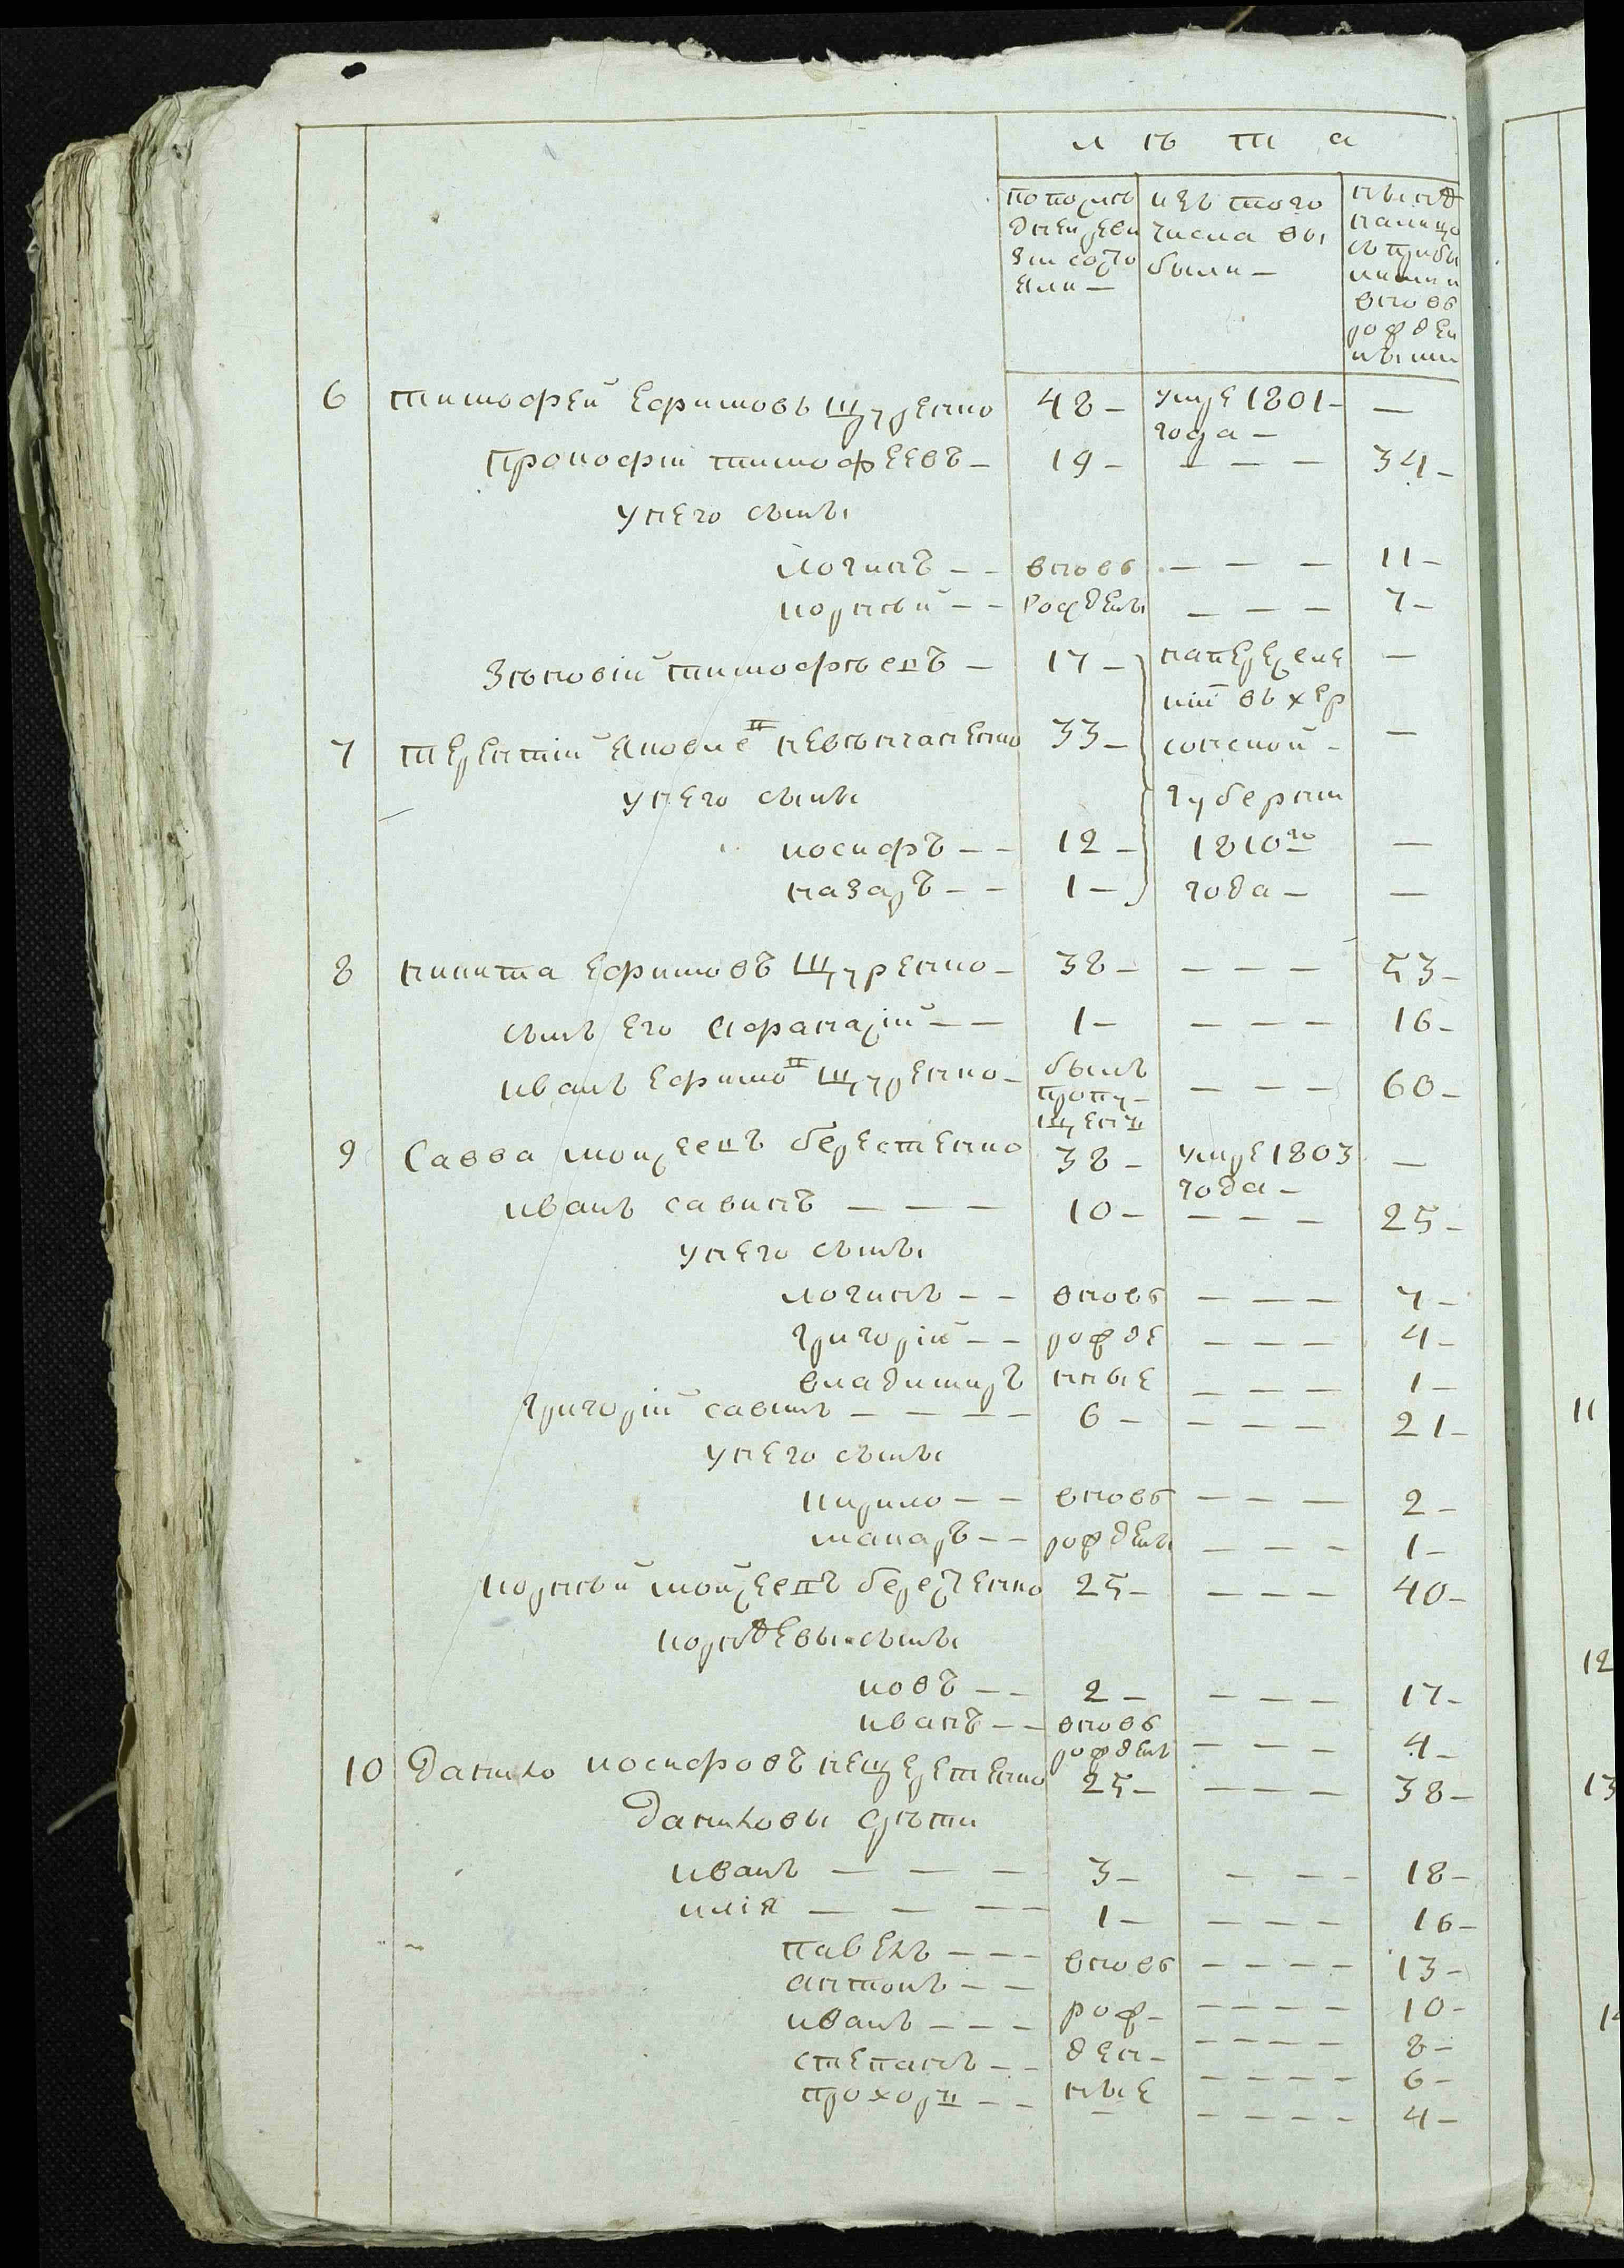 лѣта
по послѣдней реви зіи состо яли —
изъ того числа вы были —
нынѣ налицо съ прибы лыми и вновь рожден ными
6 тимофей Ефимовъ щуренко 48 — умре 1801 — года — —
Прокофій тимофеевъ — 19 — — — — 34 —
у него сыны
логинъ — — вновь — — — 11 —
корней — — рождены — — — 7 —
Зѣновій тимофѣевъ — 17 — на переселе —
ніи въ хер
7 терентій яковлевъ 33 — сонской — —
у него сыны губерніи
иосифъ — — 12 — 1810го —
назаръ — — 1 — года — —
8 никита Ефимовъ щуренко — 38 — — — — 53 —
сынъ его Афанасій — — 1 — — — — 16 —
иванъ Ефимовъ щуренко — былъ пропу — щенъ — — — 60 —
9 Савва моисеевъ берестенко 38 — умре 1803 года — —
иванъ савинъ — — — 10 — — — — 25 —
у него сыны
логинъ — — вновь — — — 7 —
григорій — — рожде — — — 4 —
владимиръ нные — — — 1 —
григорій савинъ — — — — 6 — — — — 21 —
у него сыны
кирило — — вновь — — — 2 —
макаръ — — рождены — — — 1 —
корней мойсеевъ берестенко 25 — — — — 40 —
корнѣевы сыны
иовъ — — 2 — — — — 17 —
иванъ — — вновь рожденъ — — — 4 —
10 Данило иосифовъ нещеретенко 25 — — — — 38 —
Даниловы дѣти
иванъ — — — 3 — — — — 18 —
илія — — — — 1 — — — — 16 —
павелъ — — — вновь — — — — 13 —
антонъ — — — — — — 10 —
иванъ — — — рож — — — — — 8 —
степанъ — — ден — — — — — 6 —
прохоръ — — ные — — — — 4 —
11
12
13